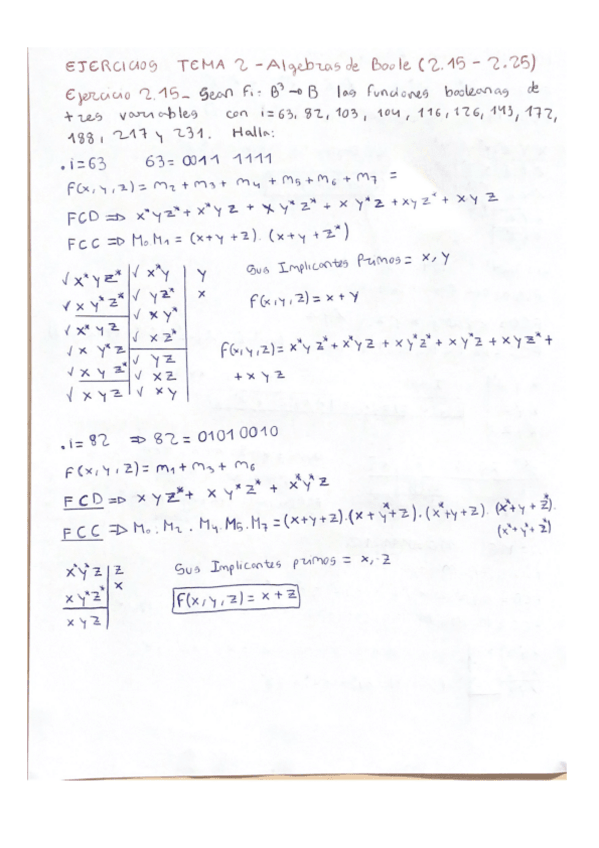 EJERCICIOS TEMA 2 - Algebras de Boole (2.15 - 2.25)
Ejercicio 2.15_ Sean Fi: B³ → B las funciones booleanas de
tres variables con i=63, 82, 103, 104, 116, 126, 143, 172,
188, 217 y 231. Halla:
. i=63 63 = 0011 1111
f(x, y, z) = m2 + m3 + m4 + m5 + m6 + m7 =
FCD ⇒ x*yz* + x*yz + xy*z* + xy*z + xyz* + xyz
FCC ⇒ M0.M1 = (x+y+z).(x+y+z*)
Sus Implicantes Primos = x, y
f(x,y,z) = x + y
f(x,y,z) = x*yz* + x*yz + xy*z* + xy*z + xyz* +
+ xyz
√ x*yz* √ x*y y
√ xy*z* √ yz* x
√ x*yz √ xy*
√ xy*z √ xz*
√ xyz* √ yz
√ xyz √ xz
√ xy
. i=82 ⇒ 82 = 01010010
f(x,y,z) = m1 + m3 + m6
FCD ⇒ xyz* + xy*z* + x*y*z
FCC ⇒ M0.M2.M4.M5.M7 = (x+y+z).(x+y*+z).(x*+y+z).(x*+y+z*).
(x*+y*+z*)
x*y*z z
xy*z* x
xyz
Sus Implicantes primos = x, z
f(x,y,z) = x + z